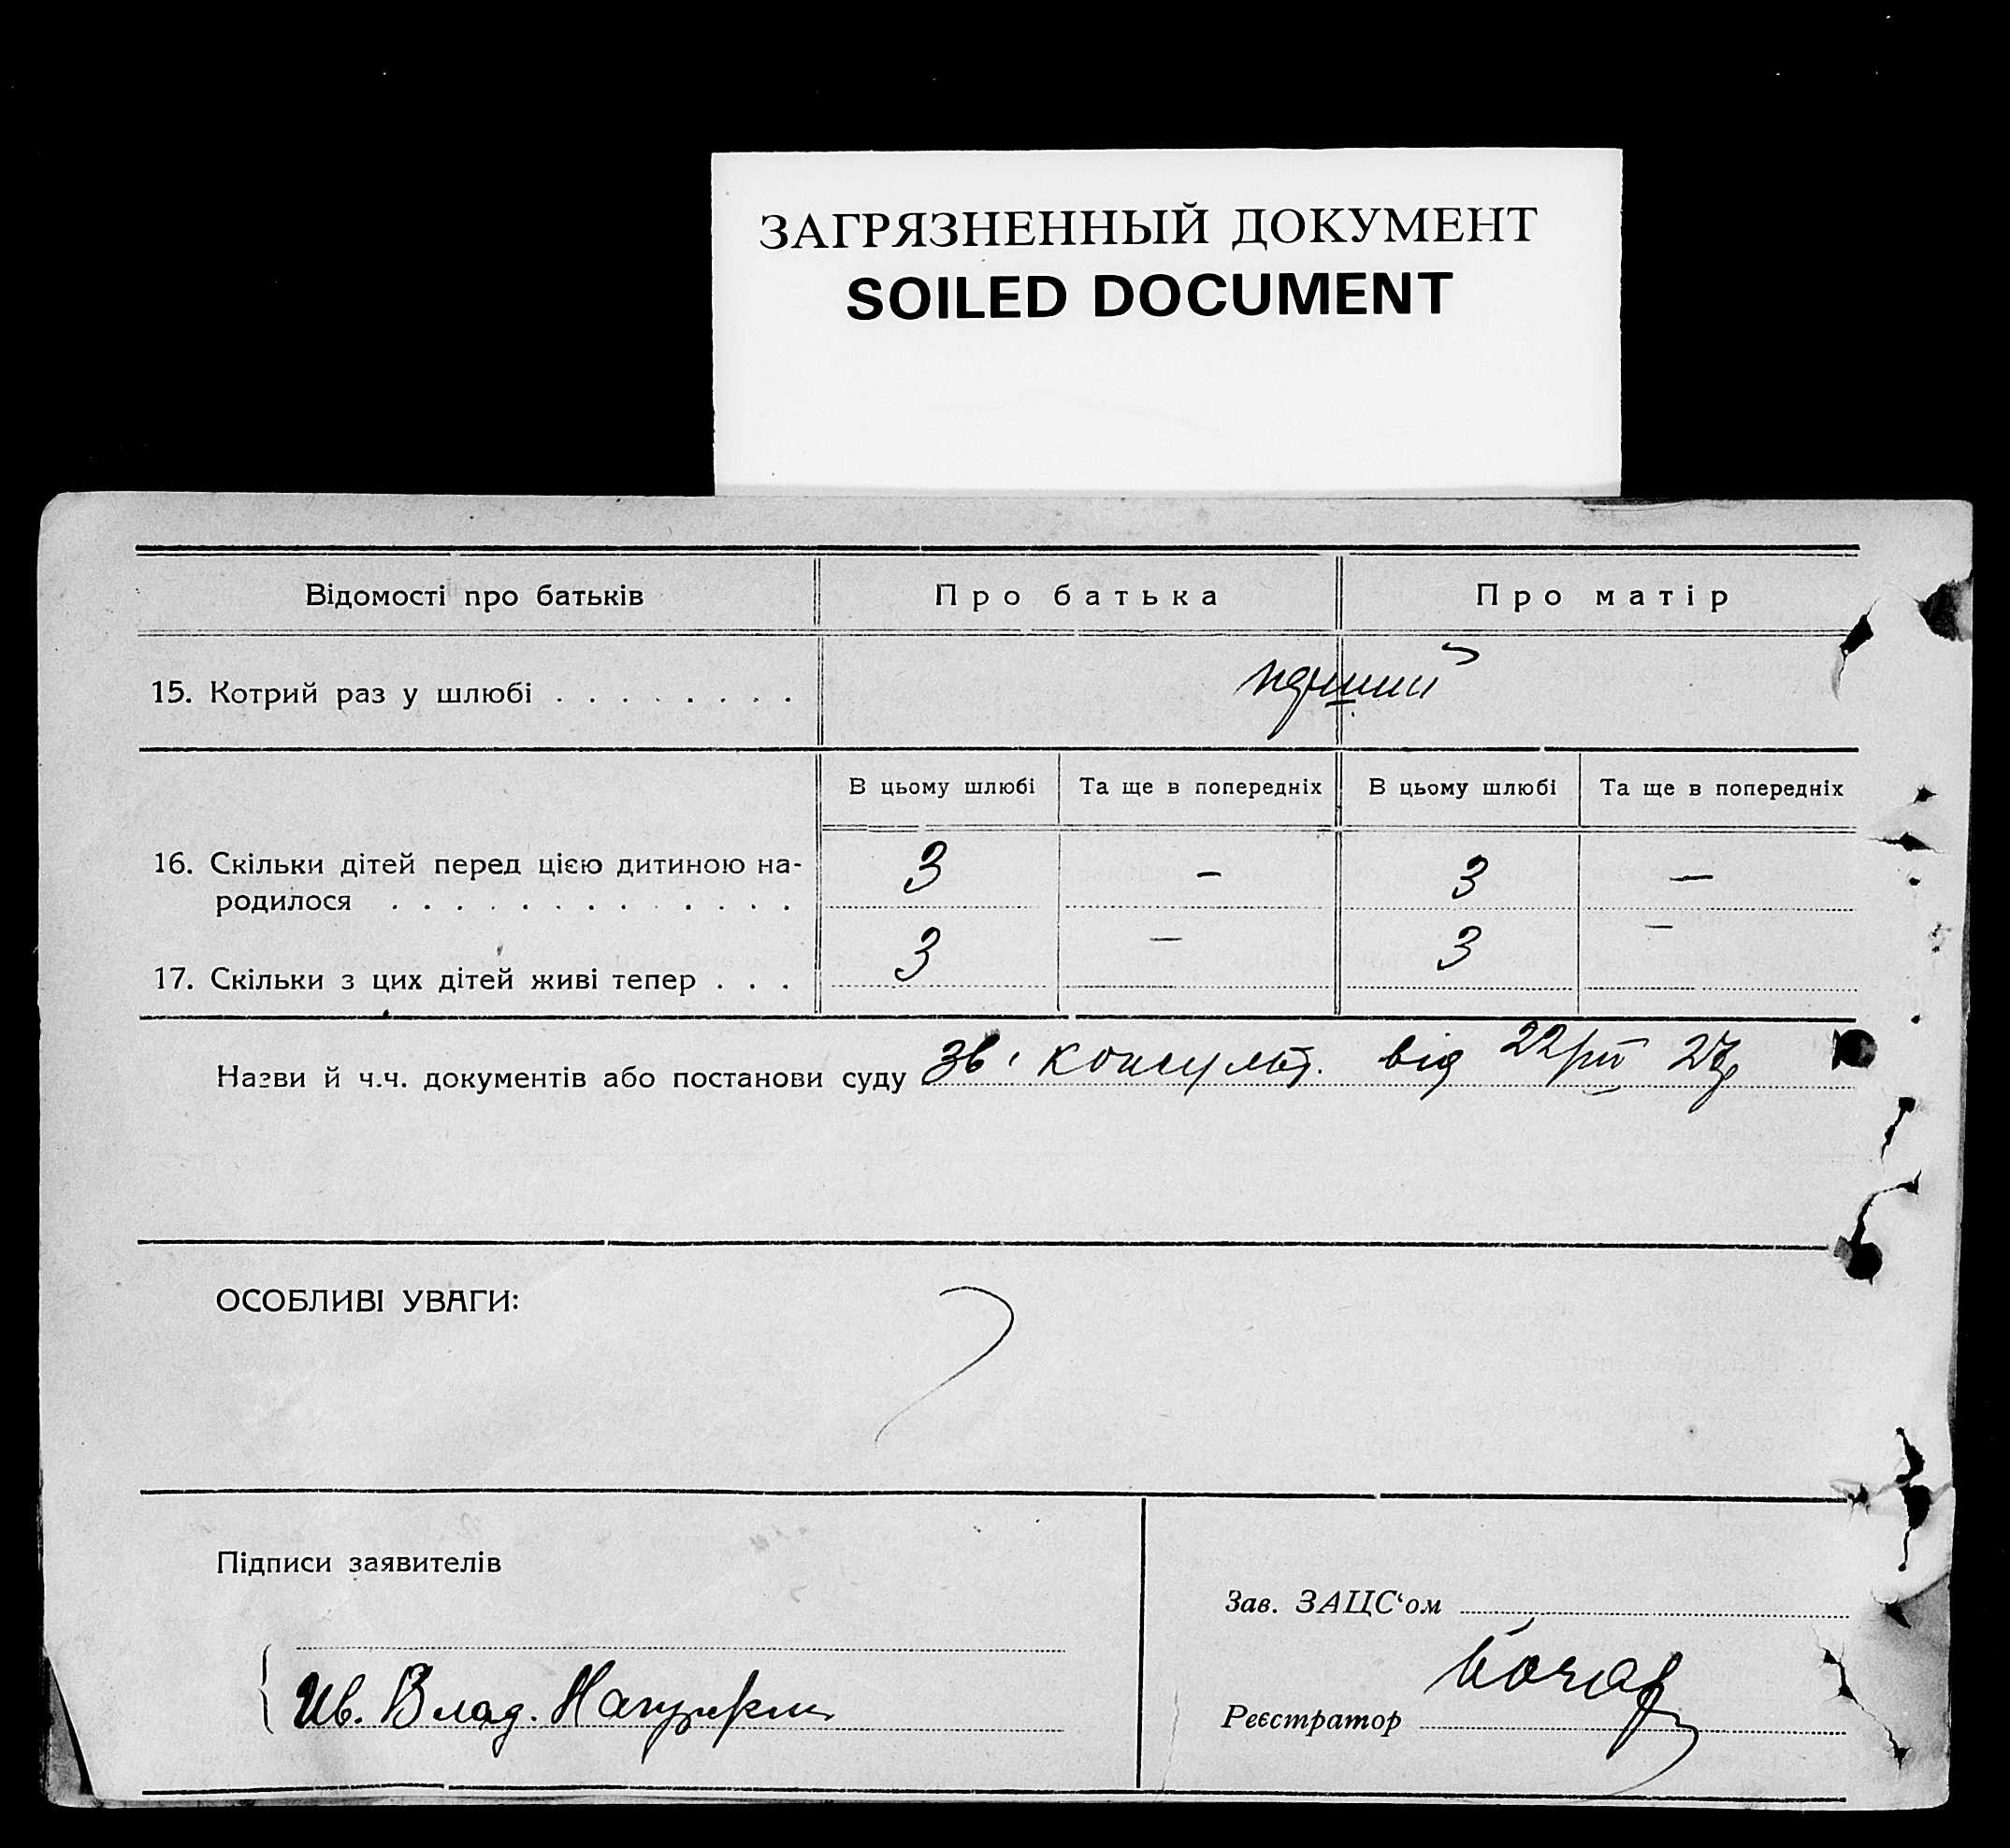 ЗАГРЯЗНЕННЫЙ ДОКУМЕНТ
SOILED DOCUMENT
Відомості про батьків Про батька Про матір
15. Котрий раз у шлюбі . . . . . . . .
В цьому шлюбі Та ще в попередніх В цьому шлюбі Та ще в попередніх
16. Скільки дітей перед цією дитиною на- 3 – 3 –
родилося . . . . . . . . . . . . .
17. Скільки з цих дітей живі тепер . . . 3 – 3 –
Назви й ч.ч. документів або постанови суду Зв. консульт. від 22/III 27р
ОСОБЛИВІ УВАГИ:
Підписи заявителів
Зав. ЗАЦС‘ом
Ив. Влад.
Реєстратор